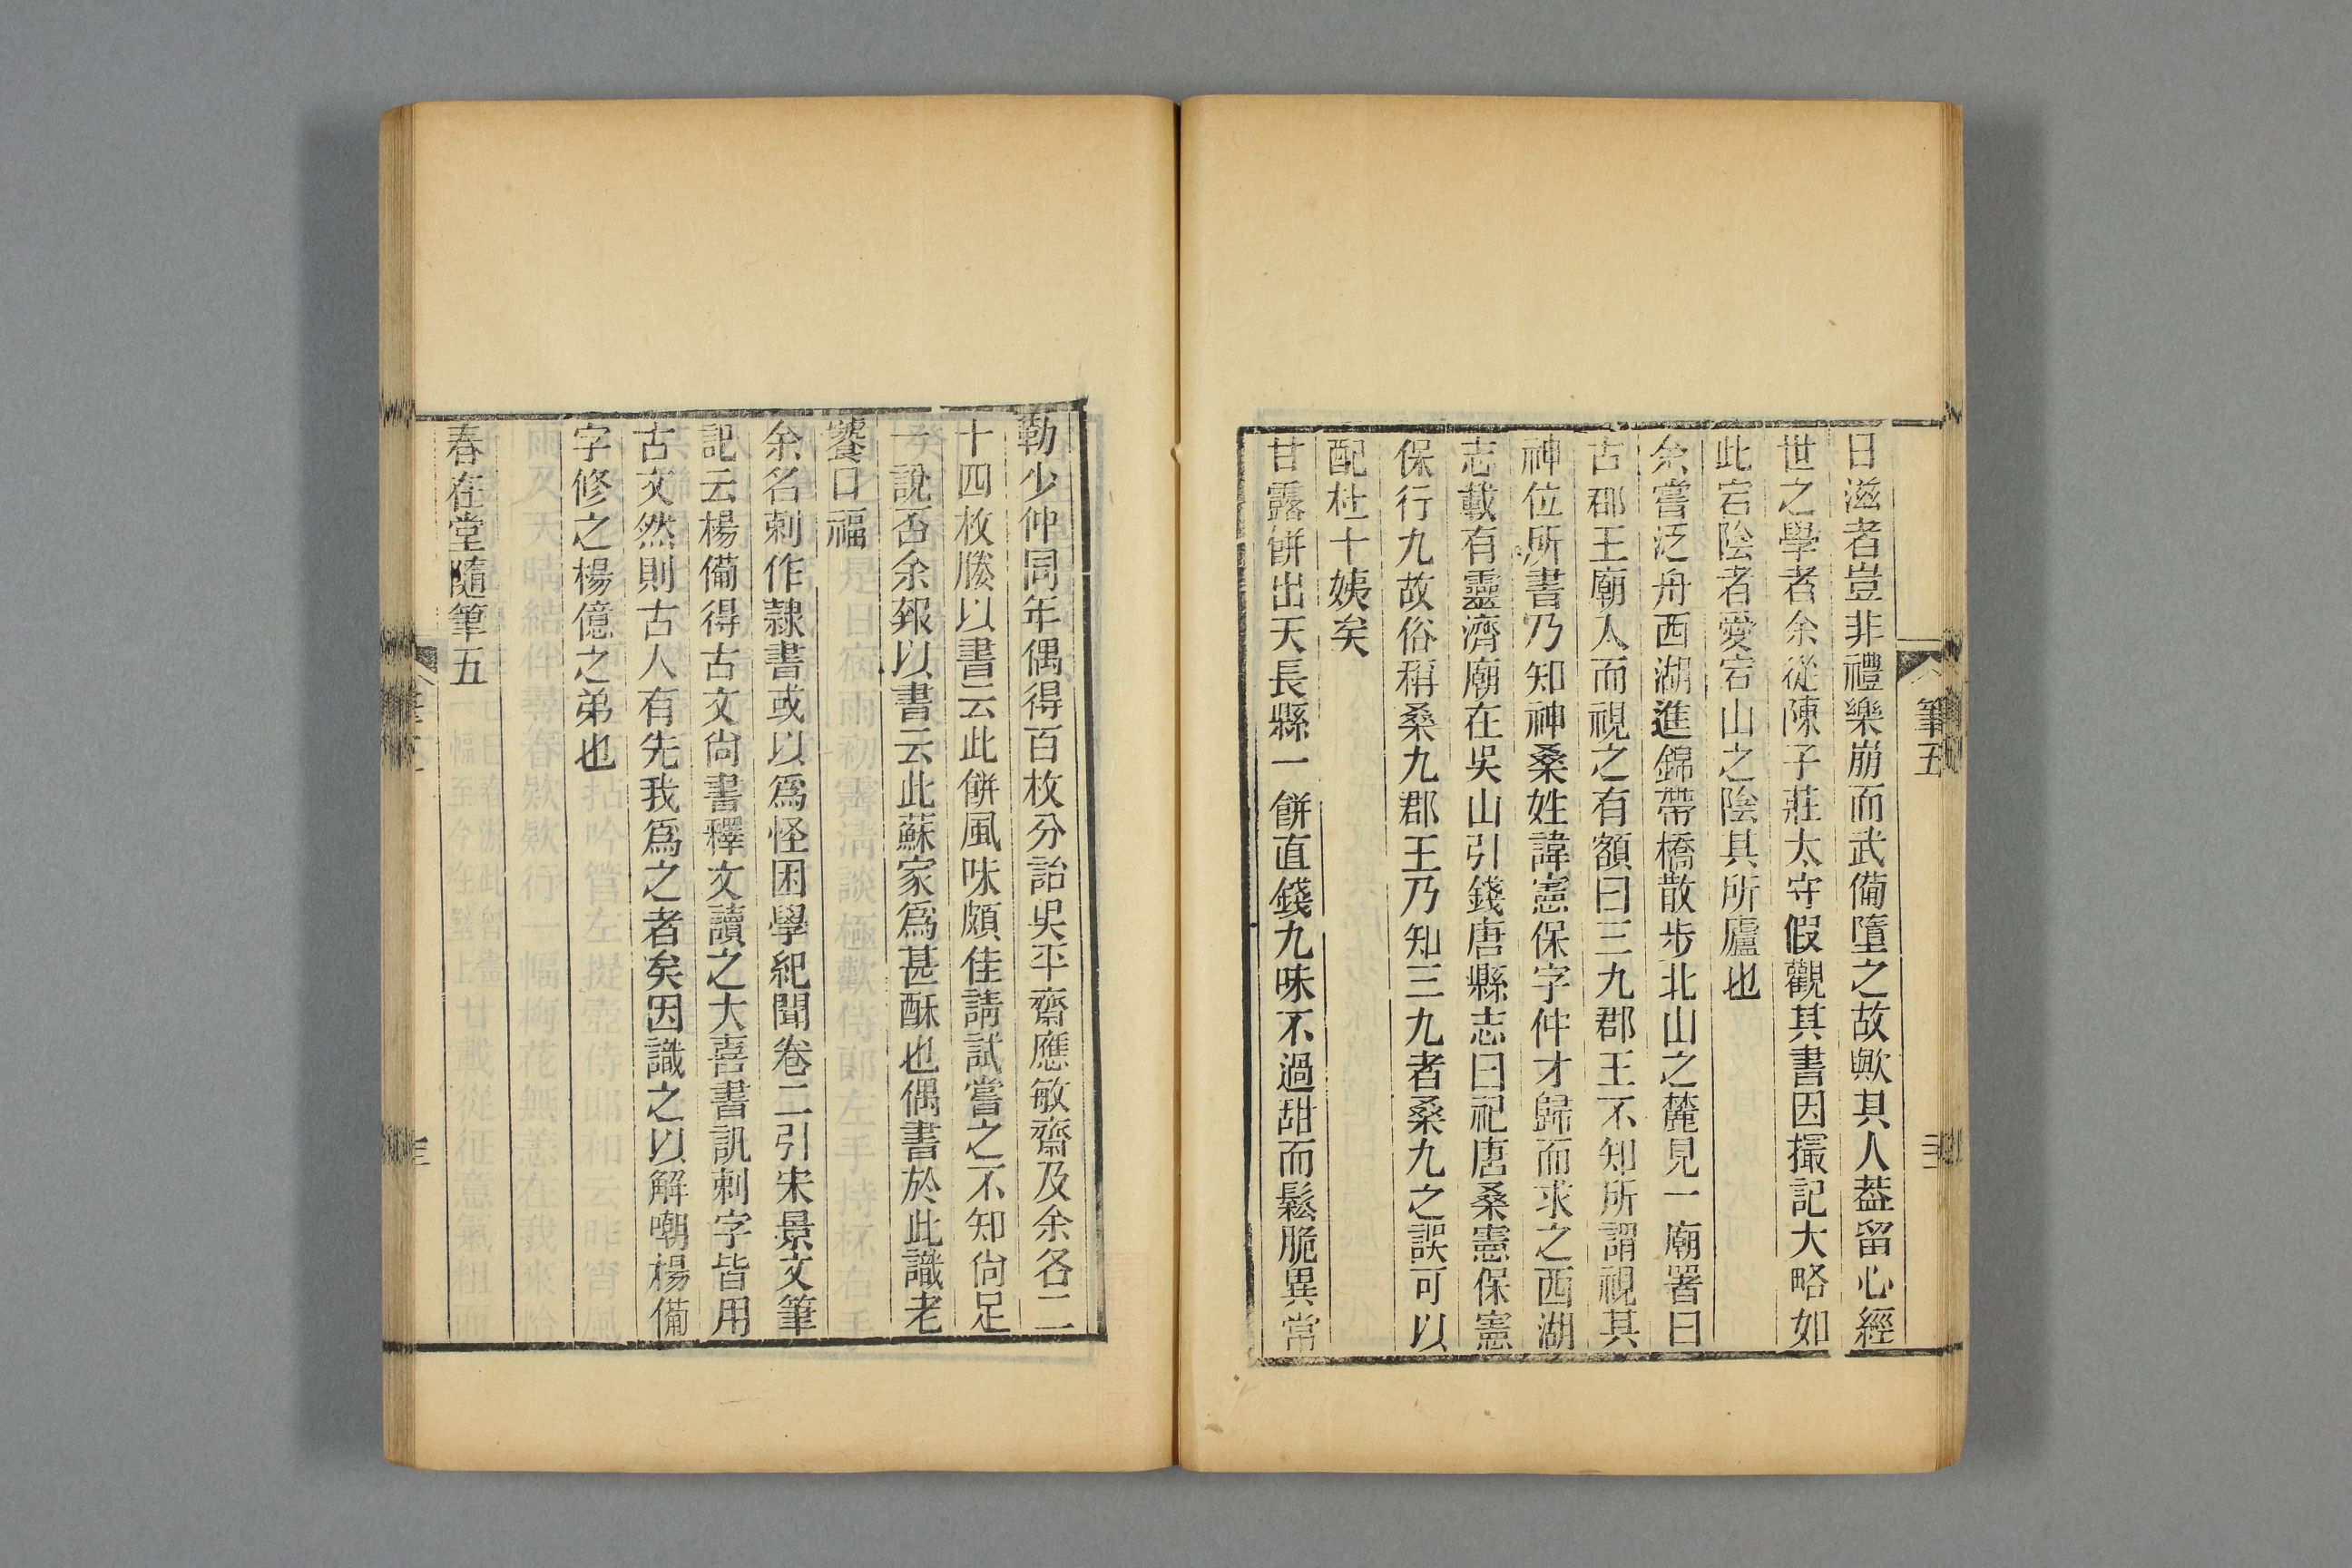 日滋者豈非禮樂崩而武備墮之故歟其人葢留心經
世之學者余從陳子莊太守假觀其書因撮記大略如
此宕陰者愛宕山之陰其所廬也
余嘗泛舟西湖進錦帶橋散步北山之麓見一廟署曰
古郡王廟人而視之有額曰三九郡王不知所謂視其
神位所書乃知神桑姓諱憲保字仲才歸而求之西湖
志載有靈濟廟在吳山引錢唐縣志曰祀唐桑憲保憲
保行九故俗稱桑九郡王乃知三九者桑九之誤可以
配杜十姨矣
甘露餅出天長縣一餅直錢九味不過甜而鬆脆異常
筆五
勒少仲同年偶得百枚分詒吳平齋應敏齋及余各二
十四枚縢以書云此餅風味頗佳請試嘗之不知尙足
一說否余報以書云此蘇家爲甚酥也偶書於此識老
饕口福
余名刺作隷書或以爲怪困學紀聞卷二引宋景文筆
記云楊備得古文尙書釋文讀之大喜書訊刺字皆用
古文然則古人有先我爲之者矣因識之以解嘲楊備
字修之楊億之弟也
春在堂隨筆五